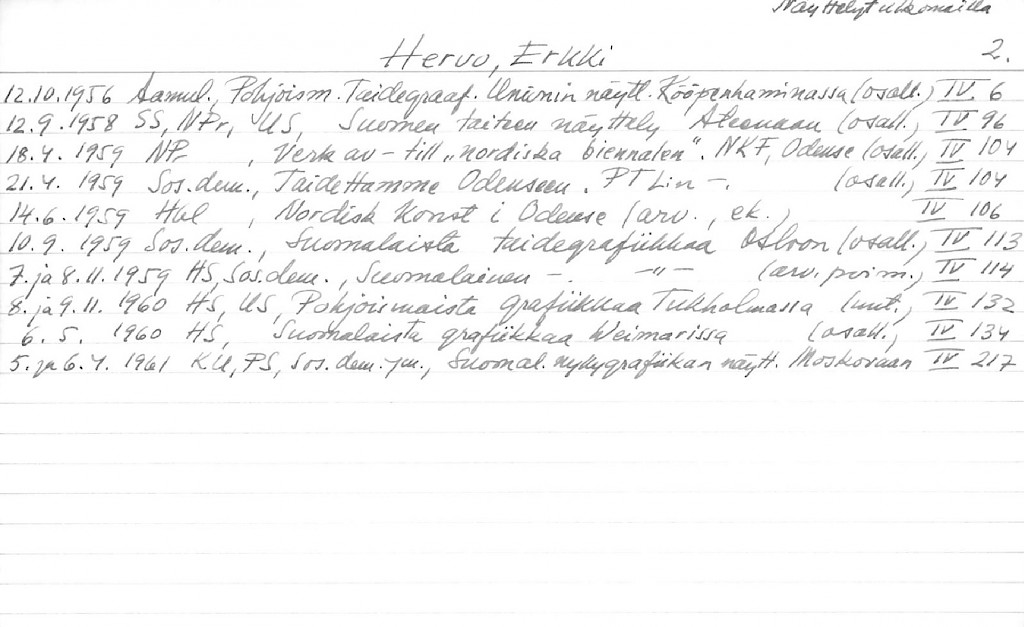 Näyttelyt ulkomailla
Hervo, Erkki 2.
12.10.1956 Aamul., Pohjoism. Taidegraaf. Unionin näytt. Kööpenhaminassa (osall.) IV 6
12.9.1958 SS, NPr, US, Suomen taiteen näyttely (osall.) IV 96
18.4.1959 NP, Verk av - till "nordiska biennalen". NKF, Odense (osall.) IV 104
21.4.1959 Sos.dem., Taidettamme Odenseen. PT Lin -. (osall.) IV 104
14.6.1959 Hbl, Nordisk Konst i Odense (arv., ek.) IV 106
10.9.1959 Sos.dem., Suomalaista taidegrafiikkaa Osloon (osall.) IV 113
7. ja 8.11.1959 HS, Sos.dem., Suomalainen -. -"- (arv. poim.) IV 114
8. ja 9.11.1960 HS, US, Pohjoismaista grafiikkaa Tukholmassa IV 132
6.5.1960 HS, Suomalaista grafiikkaa Weimarissa (osall.) IV 134
5. ja 6.4.1961 KU, PS, Sos.dem. ym., Suomal. nykygrafiikan näytt. Moskovaan IV 217